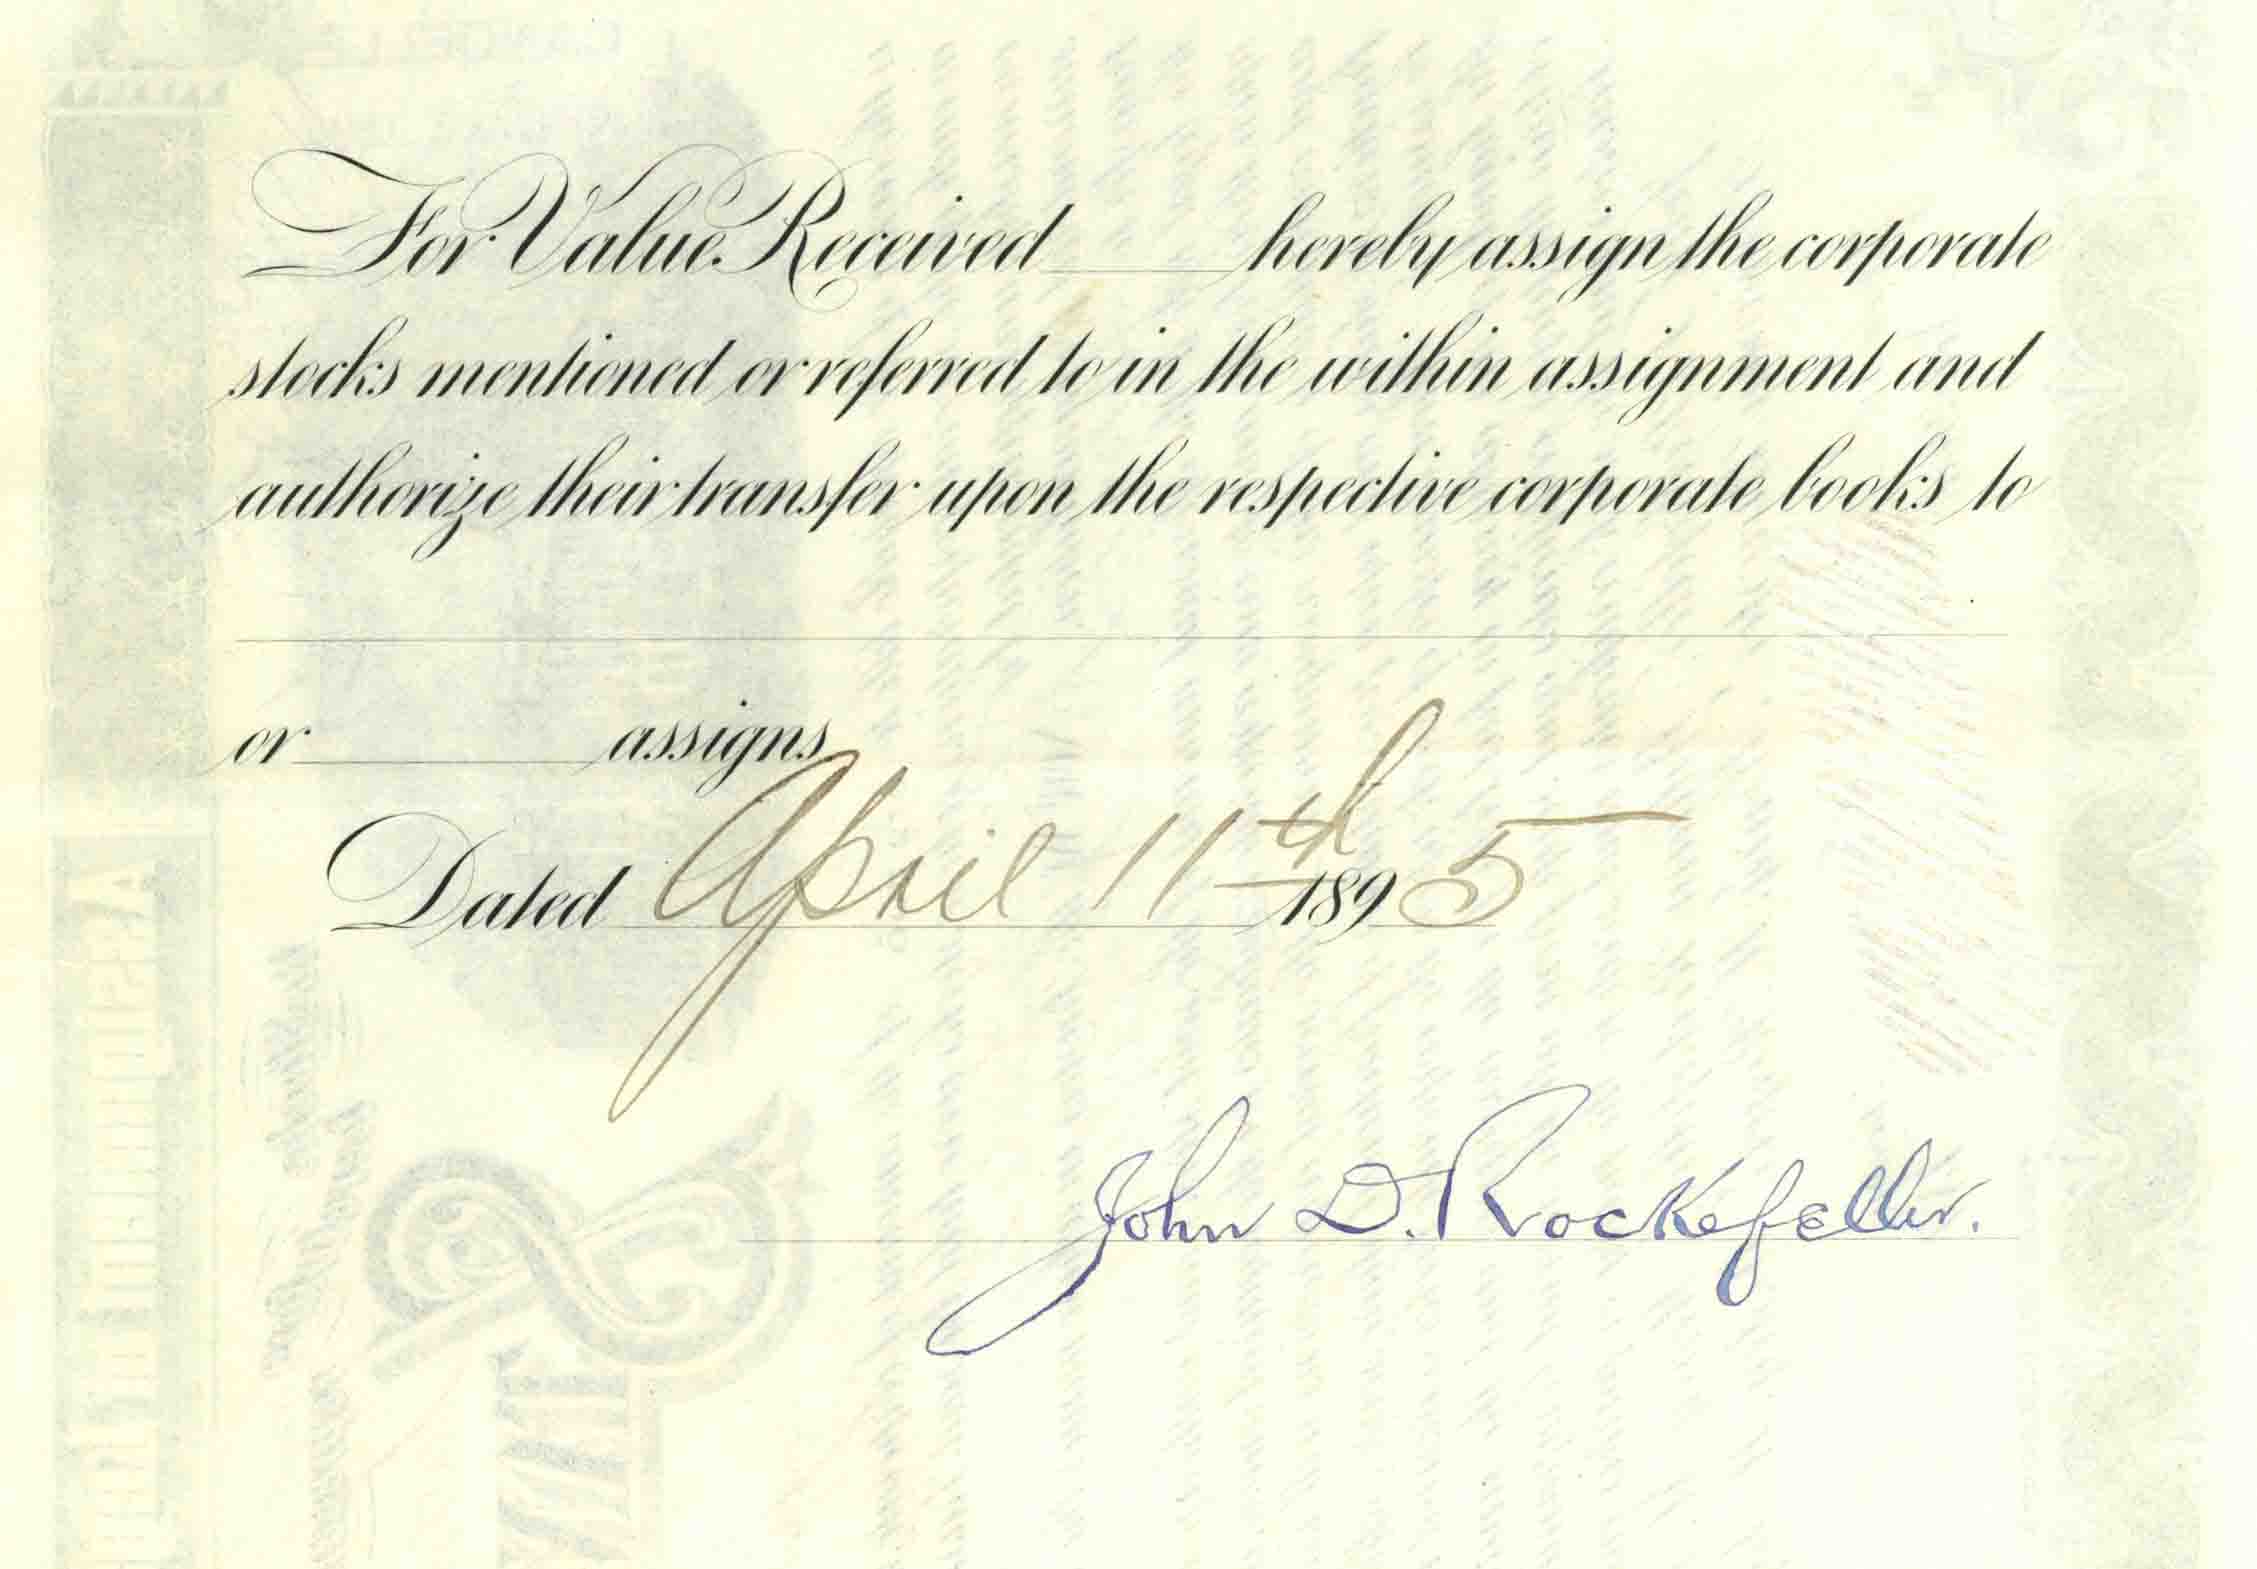 For Value Received hereby assign the corporate
stocks mentioned or referred to in the within assignment and
authorize their transfer upon the respective corporate books to
or assigns
Dated April 11th 1895
John D. Rockefeller.